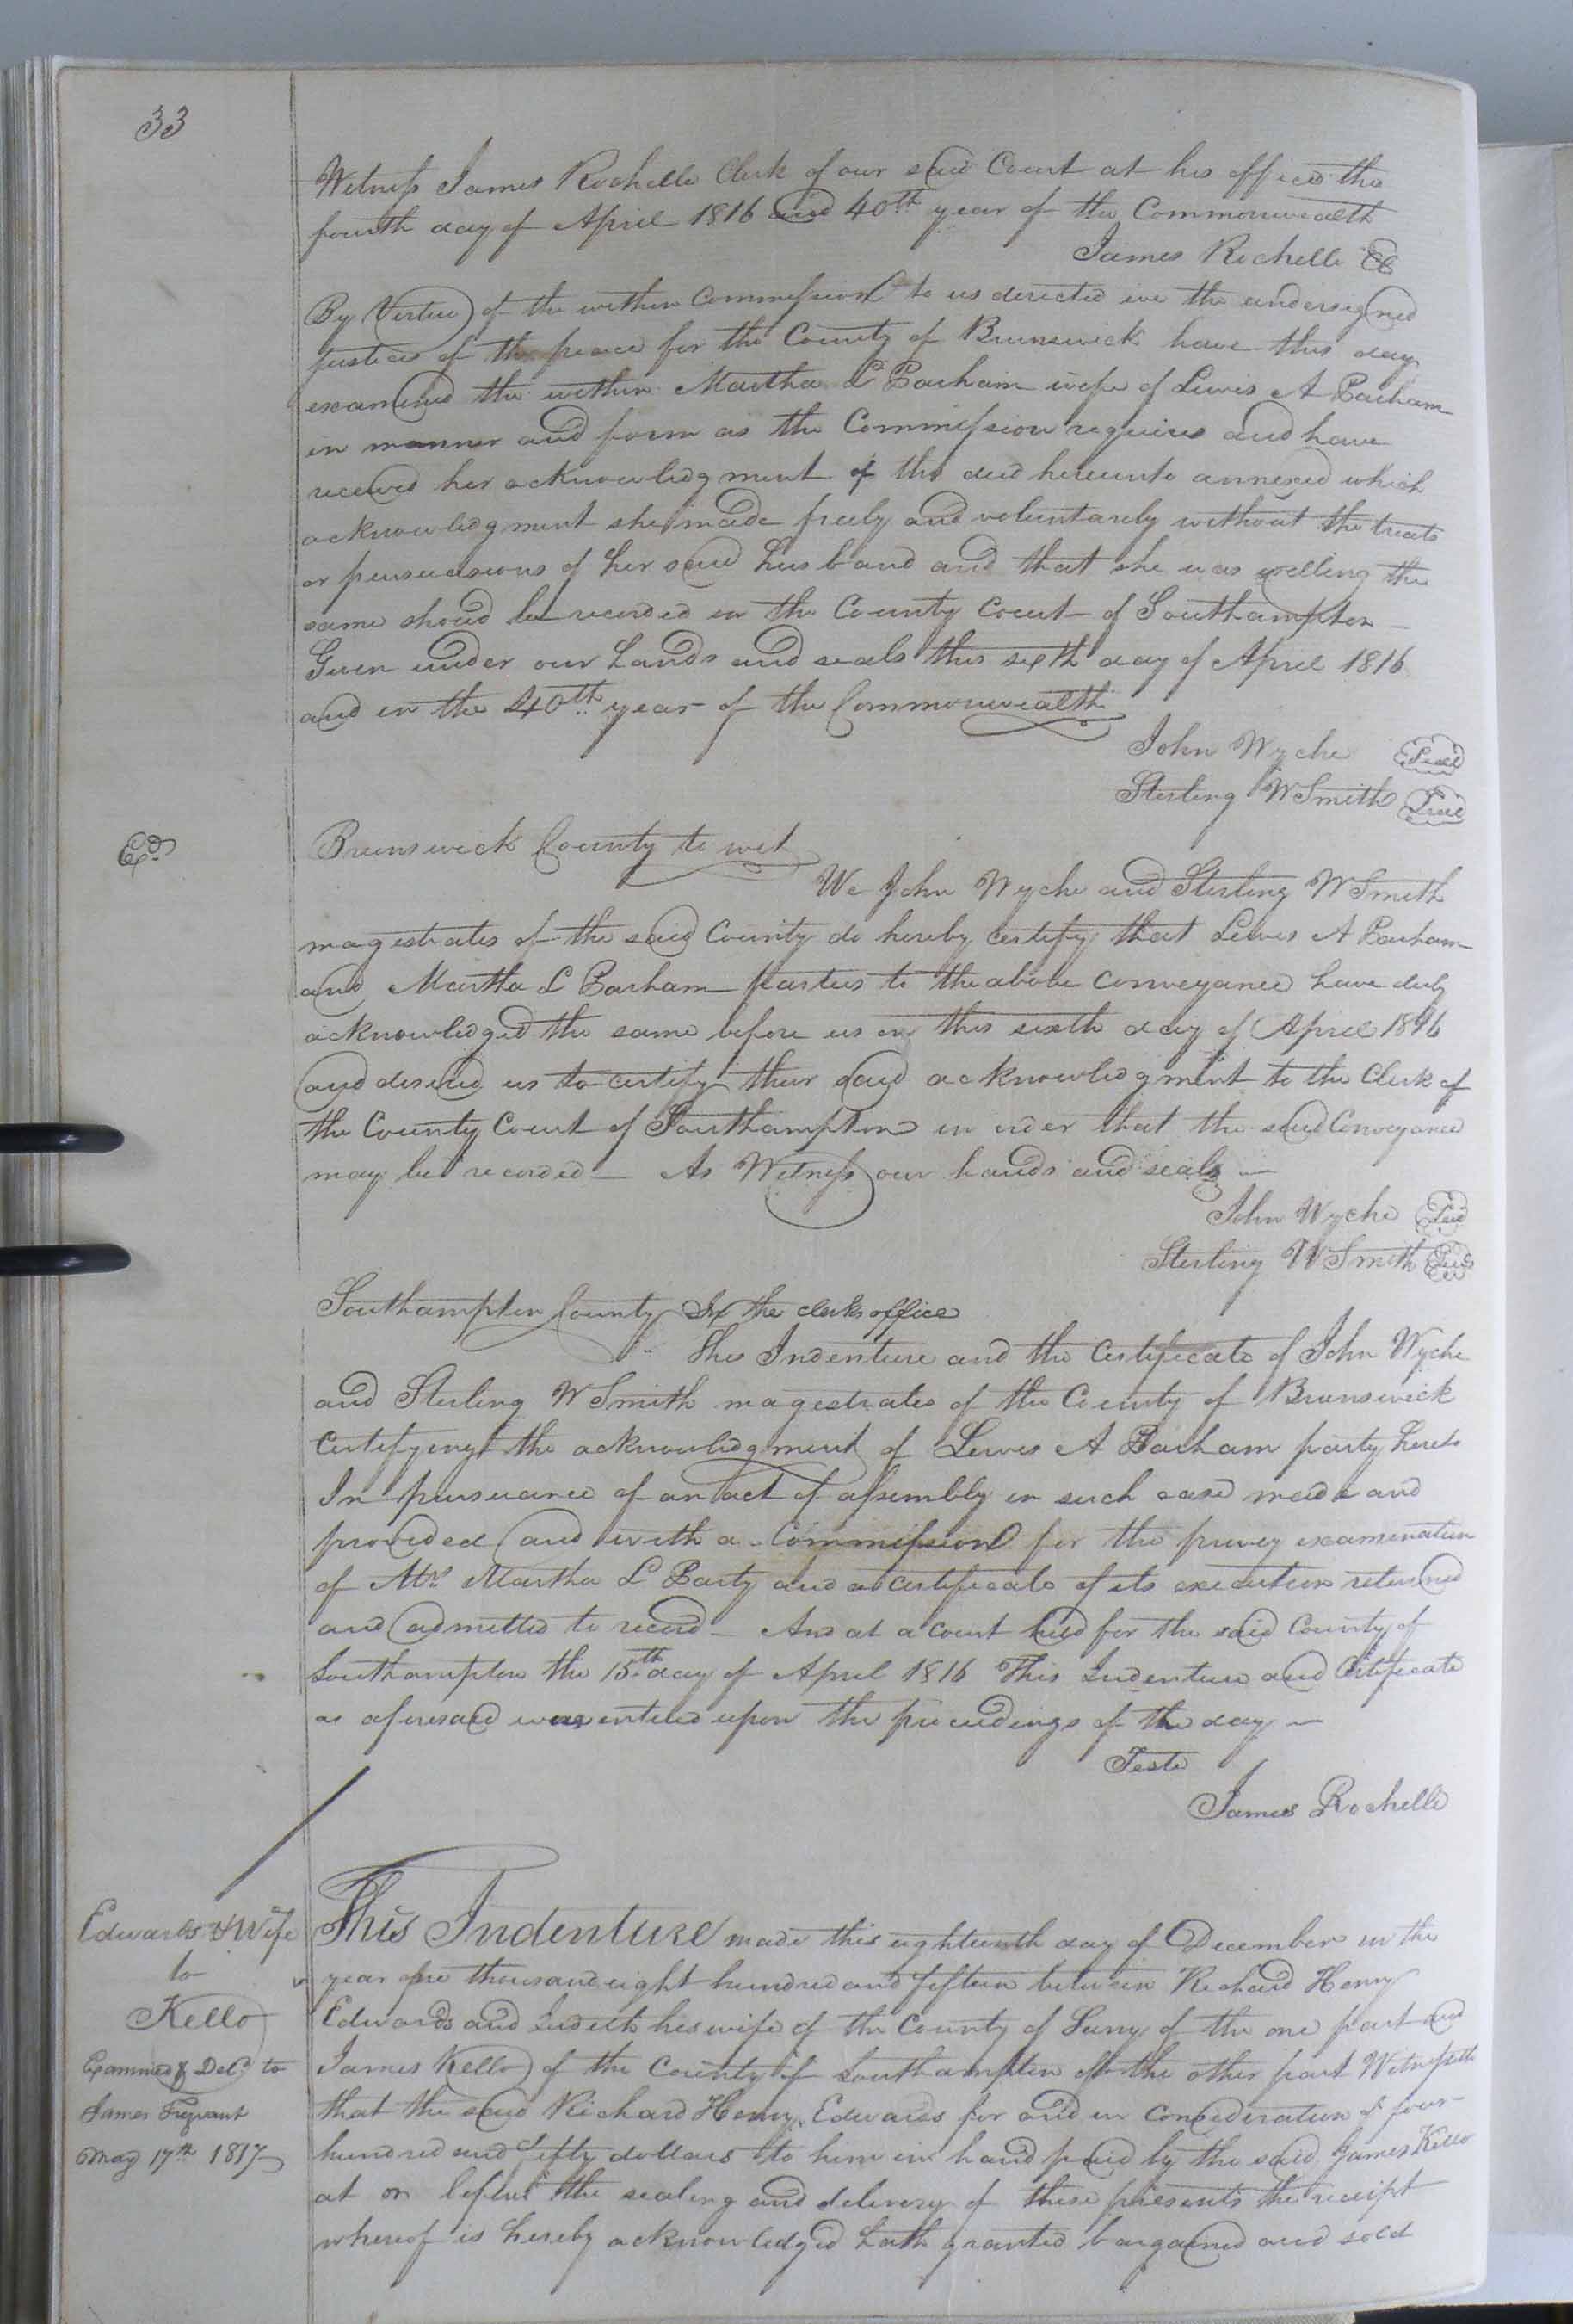 33
Witness James Rochelle Clerk of our said Court at his office the
fourth day of April 1816 and 40th year of the Commonwealth
James Rochelle CC
By Virtue of the within Commission to us directed we the undersigned
justices of the peace for the County of Brunswick have this day
examined the within Martha L Barham wife of Lewis A Barham
in manner and form as the Commission requires and have
received her acknowledgment of the deed hereunto annexed which
acknowledgment she made freely and voluntarily without the treats
or persuasions of her said husband and that she was willing the
same should be recorded in the County Court of Southampton
Given under our hands and seals this sixth day of April 1816
and in the 40th year of the Commonwealth
John Wyche Seal
Sterling W Smith Seal
Exd
Brunswick County to wit
We John Wyche and Sterling W Smith
magistrates of the said County do hereby certify that Lewis A Barham
and Martha L Barham parties to the above conveyance have duly
acknowledged the same before us on this sixth day of April 1816
and desired us to certify their said acknowledgment to the Clerk of
the County Court of Southampton in order that the said Conveyance
may be recorded — As Witness our hands and seals —
John Wyche Seal
Sterling W Smith Seal
Southampton County In the clerks office
This Indenture and the Certificate of John Wyche
and Sterling W Smith magistrates of the County of Brunswick
Certifying the acknowledgment of Lewis A Barham party hereto
In pursuance of an act of assembly in such case made and
provided and with a Commission for the privy examination
of Mrs Martha L Barty and a certificate of its execution returned
and admitted to record — And at a court held for the said County of
Southampton the 15th day of April 1816 This Indenture and Certificate
as aforesaid was entered upon the proceedings of the day —
Teste
James Rochelle
Edwards & Wife
to
Kello
Examined & Deld to
James
May 17th 1817
This Indenture made this eighteenth day of December in the
year one thousand eight hundred and fifteen between Richard Henry
Edwards and Judeth his wife of the County of Surry of the one part and
James Kello of the County of Southampton of the other part Witnesseth
that the said Richard Henry Edwards for and in consideration of four
hundred and fifty dollars to him in hand paid by the said James Kello
at or before the sealing and delivery of these presents the receipt
whereof is hereby acknowledged hath granted bargained and sold